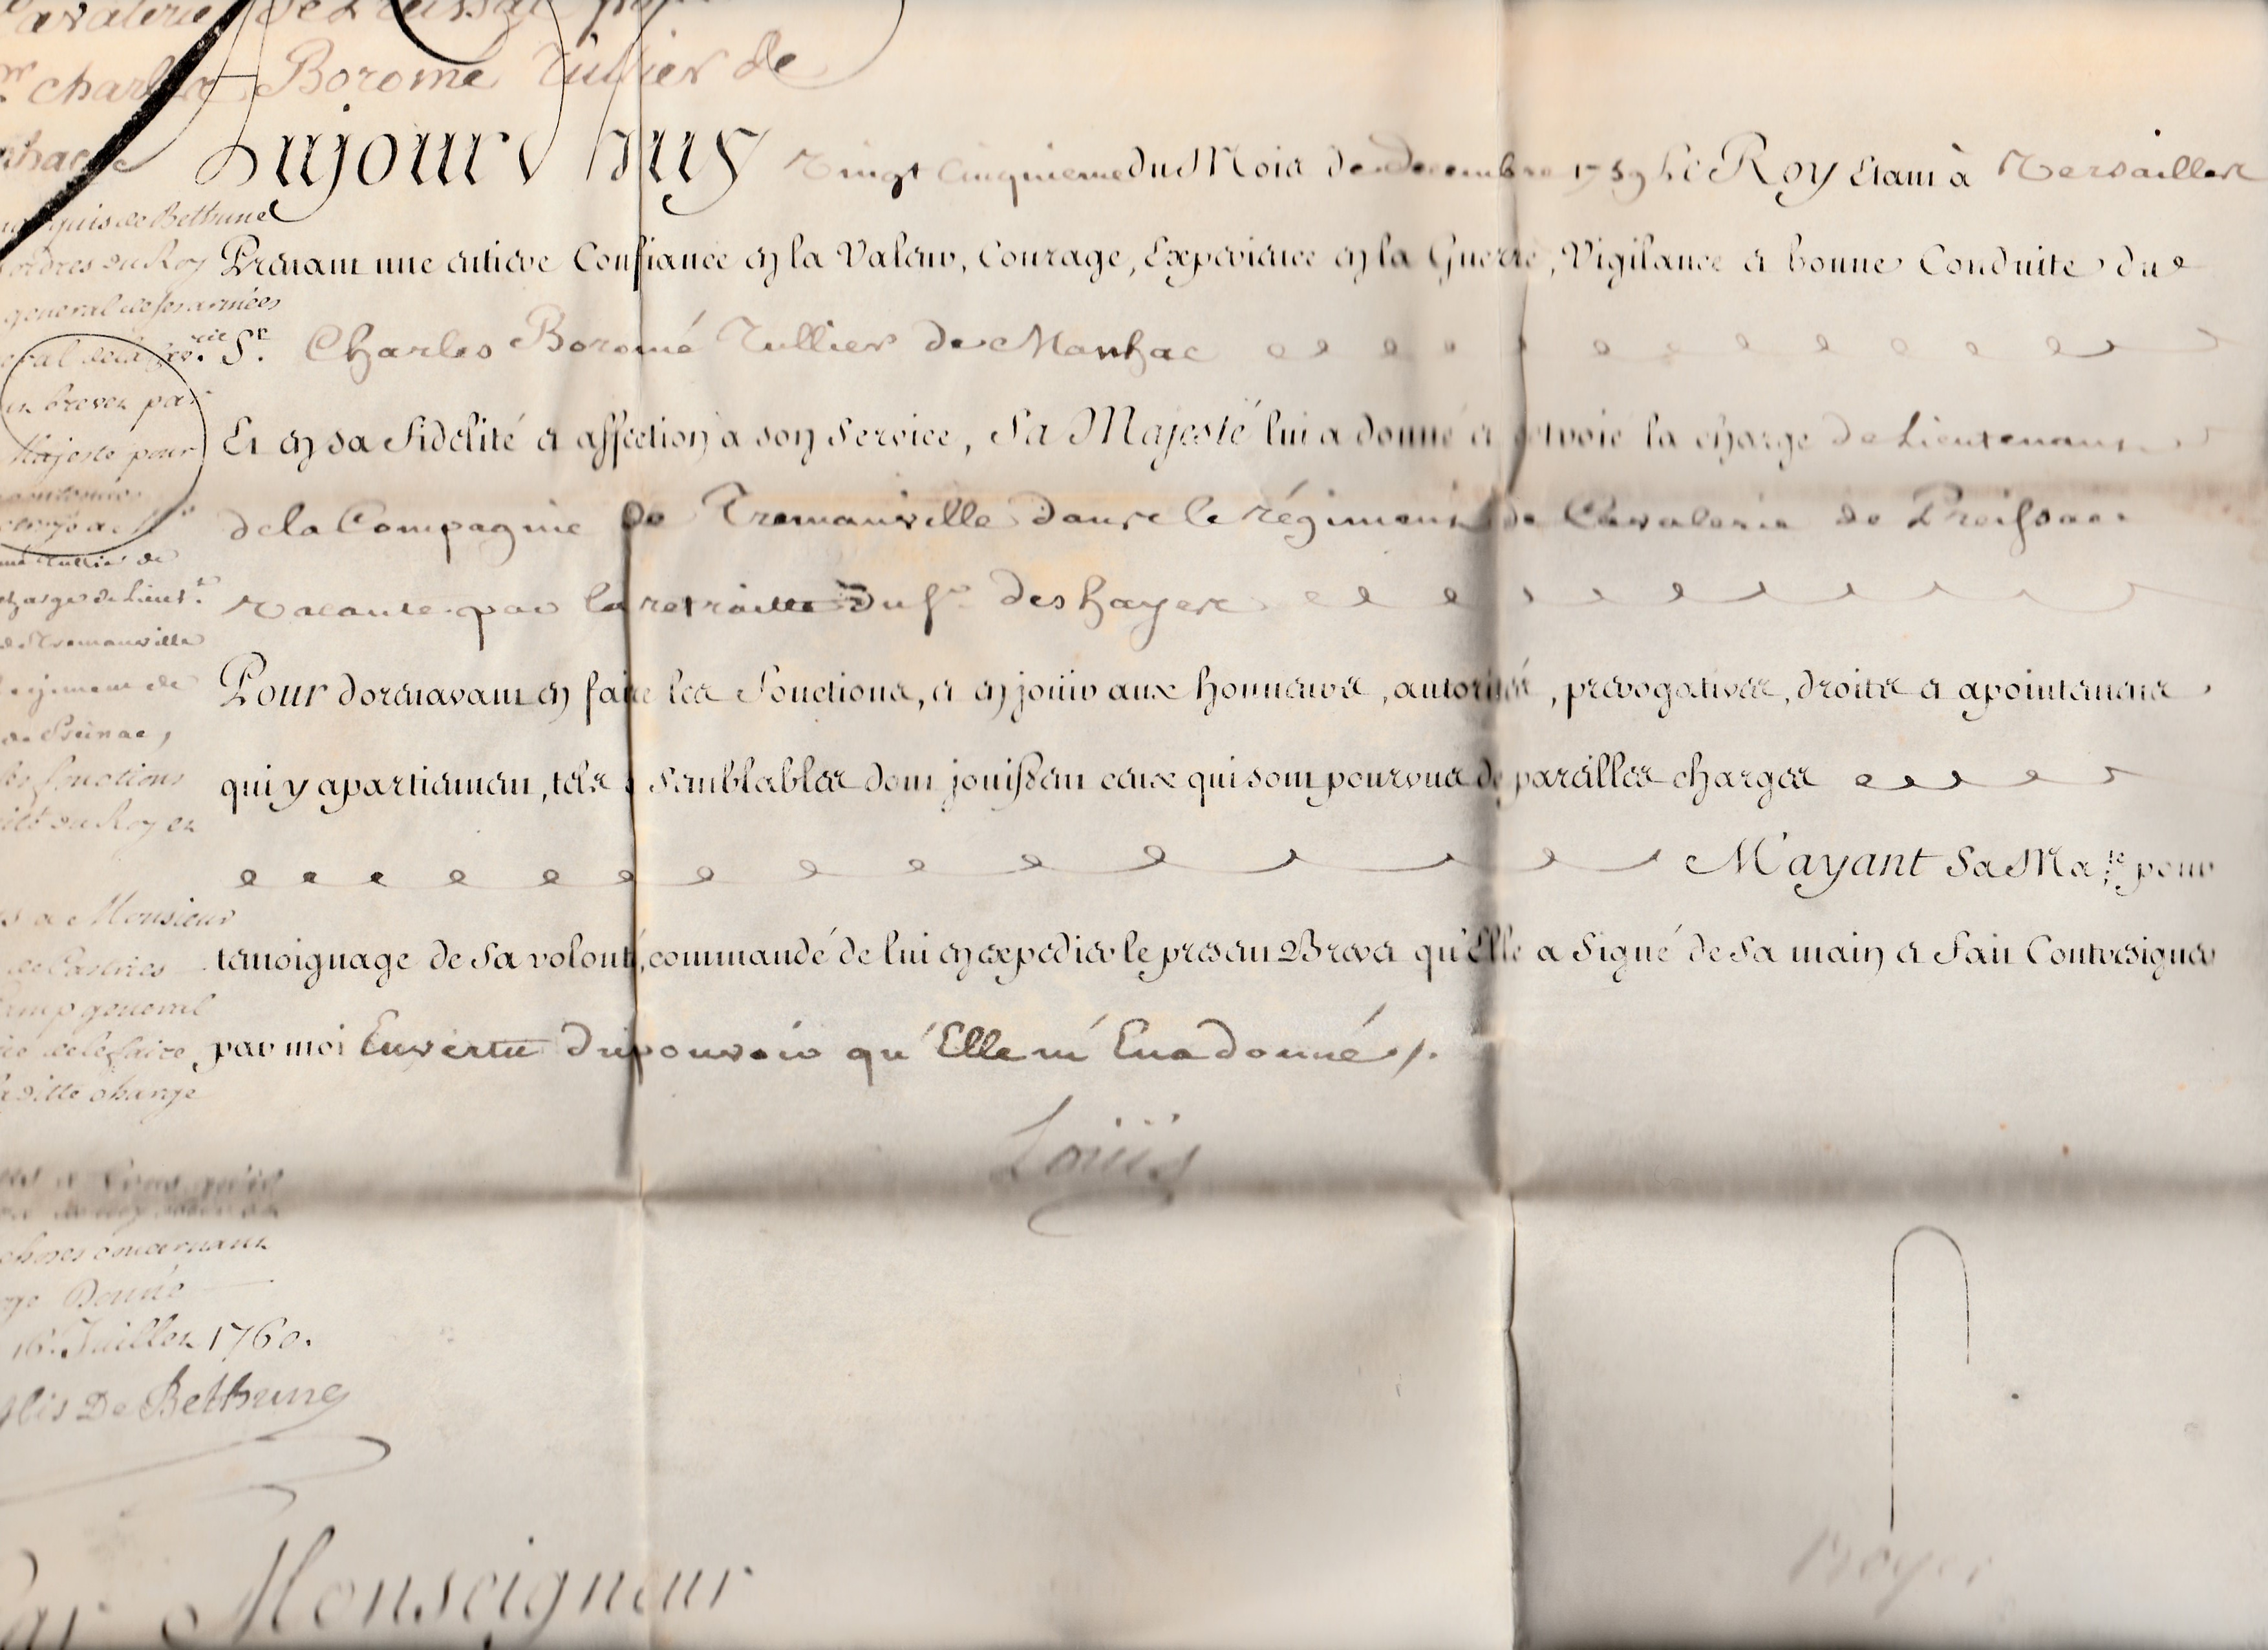 Borome Tullier de
Aujourd'huy vingt cinquieme du Mois de Decembre 1759 Le Roy étant à Versailles
Prenant une entiere Confiance en la Valeur, Courage, Experience en la Guerre, Vigilance et bonne Conduite du
Sr. Charles Boromé Tullier de Manhac
Et en sa fidélité et affection a son Service, Sa Majesté lui a donné et octroié la charge de Lieutenant
de la Compagnie de Tremanville dans le régiment de Cavalerie de Preissac
vacante par la retraitte du Sr. des hayes
Pour dorenavant en faire les fonctions, et en jouir aux honneurs, autorités, prérogatives, droits et apointemens
qui y apartiennent, tels et semblables dont jouissent ceux qui sont pourvus de pareilles charges
M'ayant Sa Ma.té pour
témoignage de Sa volonté, commandé de lui en expedier le present Brevet qu'Elle a Signé de Sa main et fait Contresigner
par moi En vertu du pouvoir qu'Elle m'En a donné /.
Louis
quis de Bethune
ordres du Roy
general de ses armées
un brevet par
Majesté pour
Tullier de
charge de Lieut.t
de Tremanville
Regiment de
de Preinac,
les fonctions
du Roy et
a Monsieur
de Castries
Camp general
de le faire
ditte charge
choses concernant
Donné
16. Juillet 1760.
De Bethune
Par Monseigneur